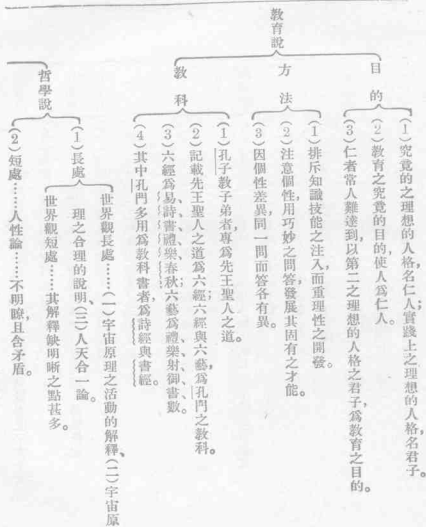 教育說
目的
(1)究竟的之理想的人格名仁人;實踐上之理想的人格名君子。
(2)教育之究竟的目的使人爲仁人。
(3)仁者常人難達到,以第二之理想的人格之君子,爲教育之目的。
方法
(1)排斥知識技能之注入而重理性之開發。
(2)注意個性,用巧妙之問答發展其固有之才能。
(3)因個性差異,同一問而答各有異。
教科
(1)孔子教子弟者專爲先王聖人之道。
(2)記載先王聖人之道爲六經六經與六藝,爲孔門之教科。
(3)六經爲易、詩書、禮、樂、春秋;六藝爲禮、樂、射、御、書、數。
(4)其中孔門多用爲教科書者爲詩經與書經。
哲學說
(1)長處
世界觀長處……(一)宇宙原理之活動的解釋、(二)宇宙原
理之合理的說明、(三)人天合一論。
世界觀短處……其解釋缺明晰之點甚多。
(2)短處……人性論……不明瞭,且含矛盾。